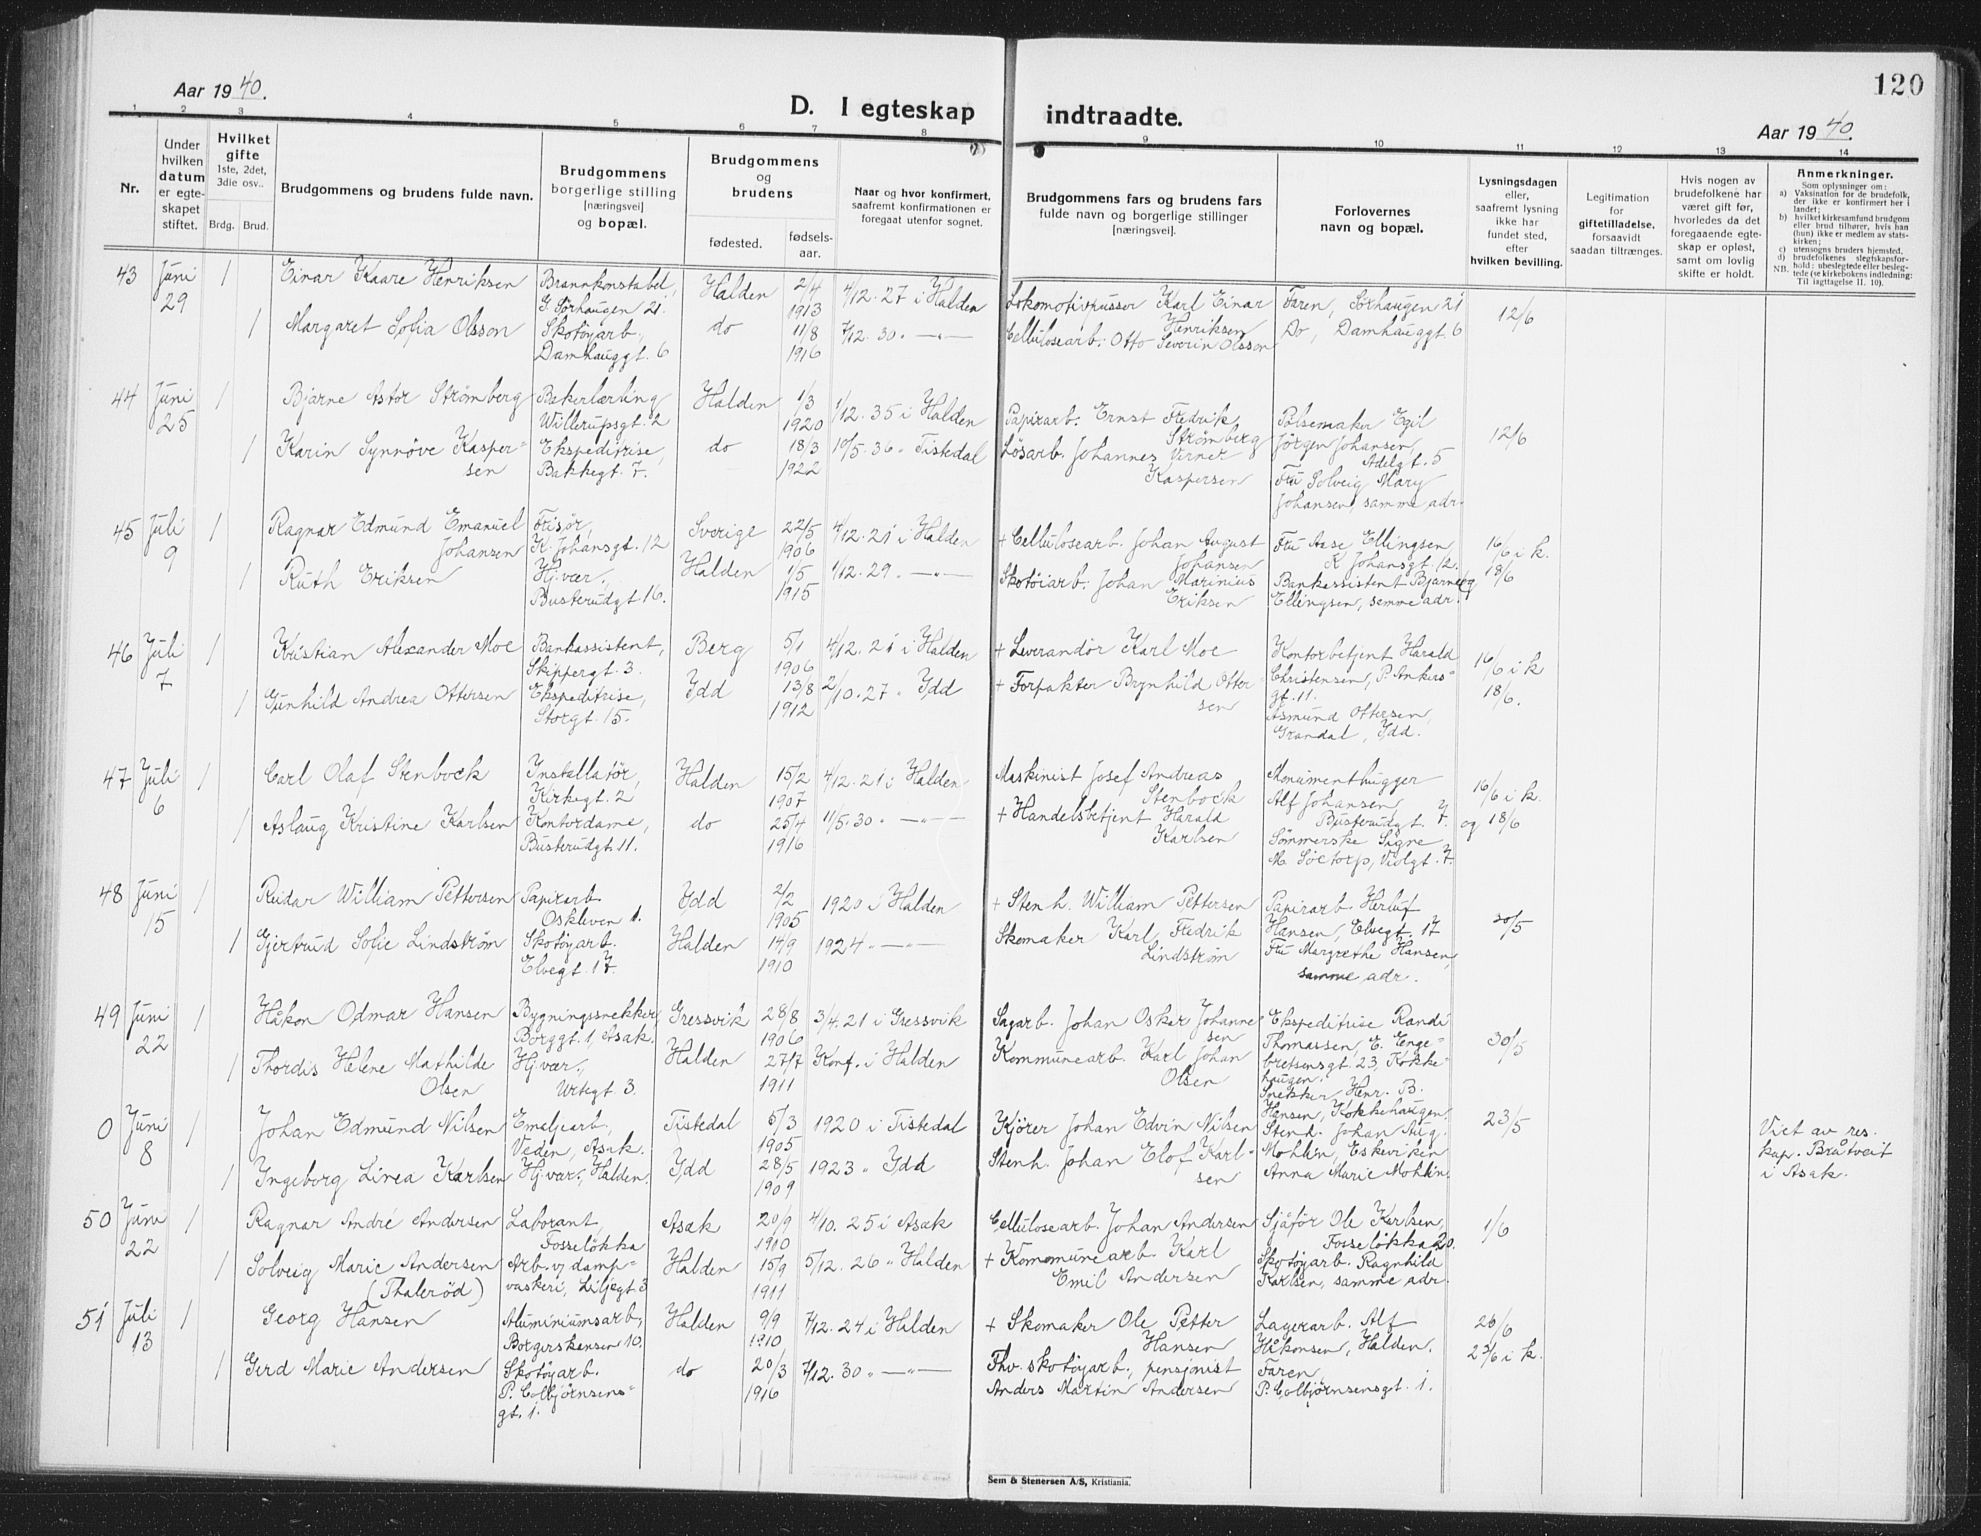 120
Aar 1940.
D. I egteskap indtraadte.
Aar 1940.
1 2 3 4 5 6 7 8 9 10 11 12 13 14
Nr.
Under hvilken datum er egte-skapet stiftet.
Hvilket gifte
1ste, 2det, 3die osv..
Brdg. Brud.
Brudgommens og brudens fulde navn.
Brudgommens borgerlige stilling [næringsvei] og bopæl.
Brudgommens og brudens
fødested. fødsels-aar.
Naar og hvor konfirmert, saafremt konfirmationen er foregaat utenfor sognet.
Brudgommens fars og brudens fars fulde navn og borgerlige stillinger [næringsvei].
Forlovernes navn og bopæl.
Lysningsdagen eller, saafremt lysning ikke har fundet sted, efter hvilken bevilling.
Legitimation for giftetilladelse, forsaavidt saadan tiltrænges.
Hvis nogen av brudefolkene har været gift før, hvorledes da det foregaaende egte-skap er opløst, samt om lovlig skifte er holdt.
Anmerkninger.
Som oplysninger om:
a) Vaksination for de brudefolk, der ikke er konfirmert her i landet;
b) hvilket kirkesamfund brudgom eller brud tilhører, hvis han (hun) ikke er medlem av stats-kirken;
c) utensogns bruders hjemsted.
d) brudefolkenes slegtskapsfor-hold: ubeslegtede eller besleg-tede (se kirkebokens indledning:
NB. Til iagttagelse II. 10).
43 Juni 29 1 Einar Kaare Henriksen Brannkonstabel, G. Sörhaugen 21. Halden 2/4 1913 4/12.27 i Halden Lokomotivpusser Karl Einar Henriksen Faren, Sörhaugen 21 12/6
1 Margaret Sofia Olsson Skotöyarb., Damhauggt. 6 do 11/8 1916 7/12.30 " — " — Cellulosearb. Otto Severin Olsson Do, Damhauggt. 6
44 Juni 25 1 Bjarne Astor Strømberg Bakerlærling Willerupsgt. 2 Halden 1/3 1920 1/12.35 i Halden Papirarb. Ernst Fredrik Strømberg Pölsemaker Egil Jörgen Johansen, Adelgt. 5 12/6
1 Karin Synnöve Kasper-sen Ekspeditrise, Bakkegt. 7. do 18/3 1922 10/5.36 " Tistedal Lösarb. Johannes Verner Kaspersen Fru Solveig Mary Johansen, samme adr.
45 Juli 9 1 Ragnar Edmund Emanuel Johansen Frisör, K. Johansgt. 12 Sverige 22/5 1906 4/12.21 i Halden + Cellulosearb. Johan August Johansen Fru Aase Ellingsen K Johansgt. 12. 16/6 i k. og 18/6
1 Ruth Eriksen Hj.vær., Busterudgt 16. Halden 1/5 1915 1/12.29 " — " — Skotöiarb. Johan Marinius Eriksen Bankassistent Bjarne Ellingsen, samme adr.
46 Juli 7 1 Kristian Alexander Moe Bankassistent, Skippergt. 3. Berg 5/1 1906 4/12.21 i Halden + Leverandör Karl Moe Kontorbetjent Harald Christensen, P. Ankers-gt. 11. 16/6 i k 18/6.
1 Gunhild Andrea Ottersen Ekspeditrise, Storgt. 15. Ydd 13/8 1912 2/10.27 " Ydd + Forpakter Brynhild Otter sen Asmund Ottersen, Grandal, Ydd.
47 Juli 6 1 Carl Olaf Stenbock Installatör, Kirkegt. 2 Halden 15/2 1907 4/12.21 i Halden Maskinist Josef Andreas Stenbock Monumenthugger Alf Johansen, Busterudgt. 7. 16/6 i k. og 18/6
1 Aslaug Kristine Karlsen Kontordame, Busterudgt. 11. do 25/4 1916 11/5.30 " — " — + Handelsbetjent Harald Karlsen Sömmerske Signe M. Söetorp, Violgt. 7.
48 Juni 15 1 Reidar William Pettersen Papirarb Oskleven 1. Ydd 2/2 1905 1920 i Halden + Stenh. William Pettersen Papirarb. Herluf Hansen, Elvegt. 17 30/5
1 Gjertrud Sofie Lindström Skotöyarb. Elvegt. 17. Halden 14/9 1910 1924 " — " — Skomaker Karl Fredrik Lindström Fru Margrethe Hansen, samme adr.
49 Juni 22 1 Håkon Odmar Hansen Bygningssnekker Borggt. 1, Asak. Gressvik 28/8 1906 3/4.21 i Gressvik Sagarb. Johan Oskar Johanne sen Ekspeditrise Randi Thomassen, E. Enge-bretsensgt. 23, Kokke-haugen. 30/5
1 Thordis Helene Mathilde Olsen Hj.vær., Urtegt 3. Halden 27/7 1911 Konf. i Halden Kommunearb. Karl Johan Olsen Snekker Henr. B. Hansen, Kokkehaugen.
0 Juni 8 1 Johan Edmund Nilsen Emaljearb., Veden, Asak. Tistedal 5/3 1905 1920 i Tistedal Kjörer Johan Edvin Nilsen Stenh. Johan Aug. Mohlin, Eskeviken 23/5 Viet av res. kap. Bråtveit i Asak.
1 Ingeborg Linea Karlsen Hj.vær., Halden. Ydd 28/5 1909 1923 " Ydd Stenh. Johan Elof Karl-sen Anna Marie Mohlin.
50 Juni 22 1 Ragnar André Andersen Laborant, Fosselökka Asak 20/9 1910 4/10.25 i Asak Cellulosearb. Johan Andersen Sjåför Ole Karlsen, Fosselökka 20. 1/6
1 Solveig Marie Andersen (Thaleröd) Arb. v/ damp-vaskeri, Liljegt 3 Halden 15/9 1911 5/12.26 " Halden + Kommunearb. Karl Emil Andersen Skotöyarb. Ragnhild Karlsen, samme adr.
51 Juli 13 1 Georg Hansen Aluminiumsarb., Borgerskansen 10. Halden 9/9 1910 7/12.24 i Halden + Skomaker Ole Petter Hansen Lagerarb. Alf Håkonsen, Halden. 26/6 23/6 i k.
1 Gerd Marie Andersen Skotöyarb. P. Colbjörnsens-gt. 1. do 20/3 1916 7/12.30 " — " — Fhv. skotöyarb., pensjonist Anders Martin Andersen Faren, P. Colbjörnsensgt. 1.
Sem & Stenersen A/S, Kristiania.